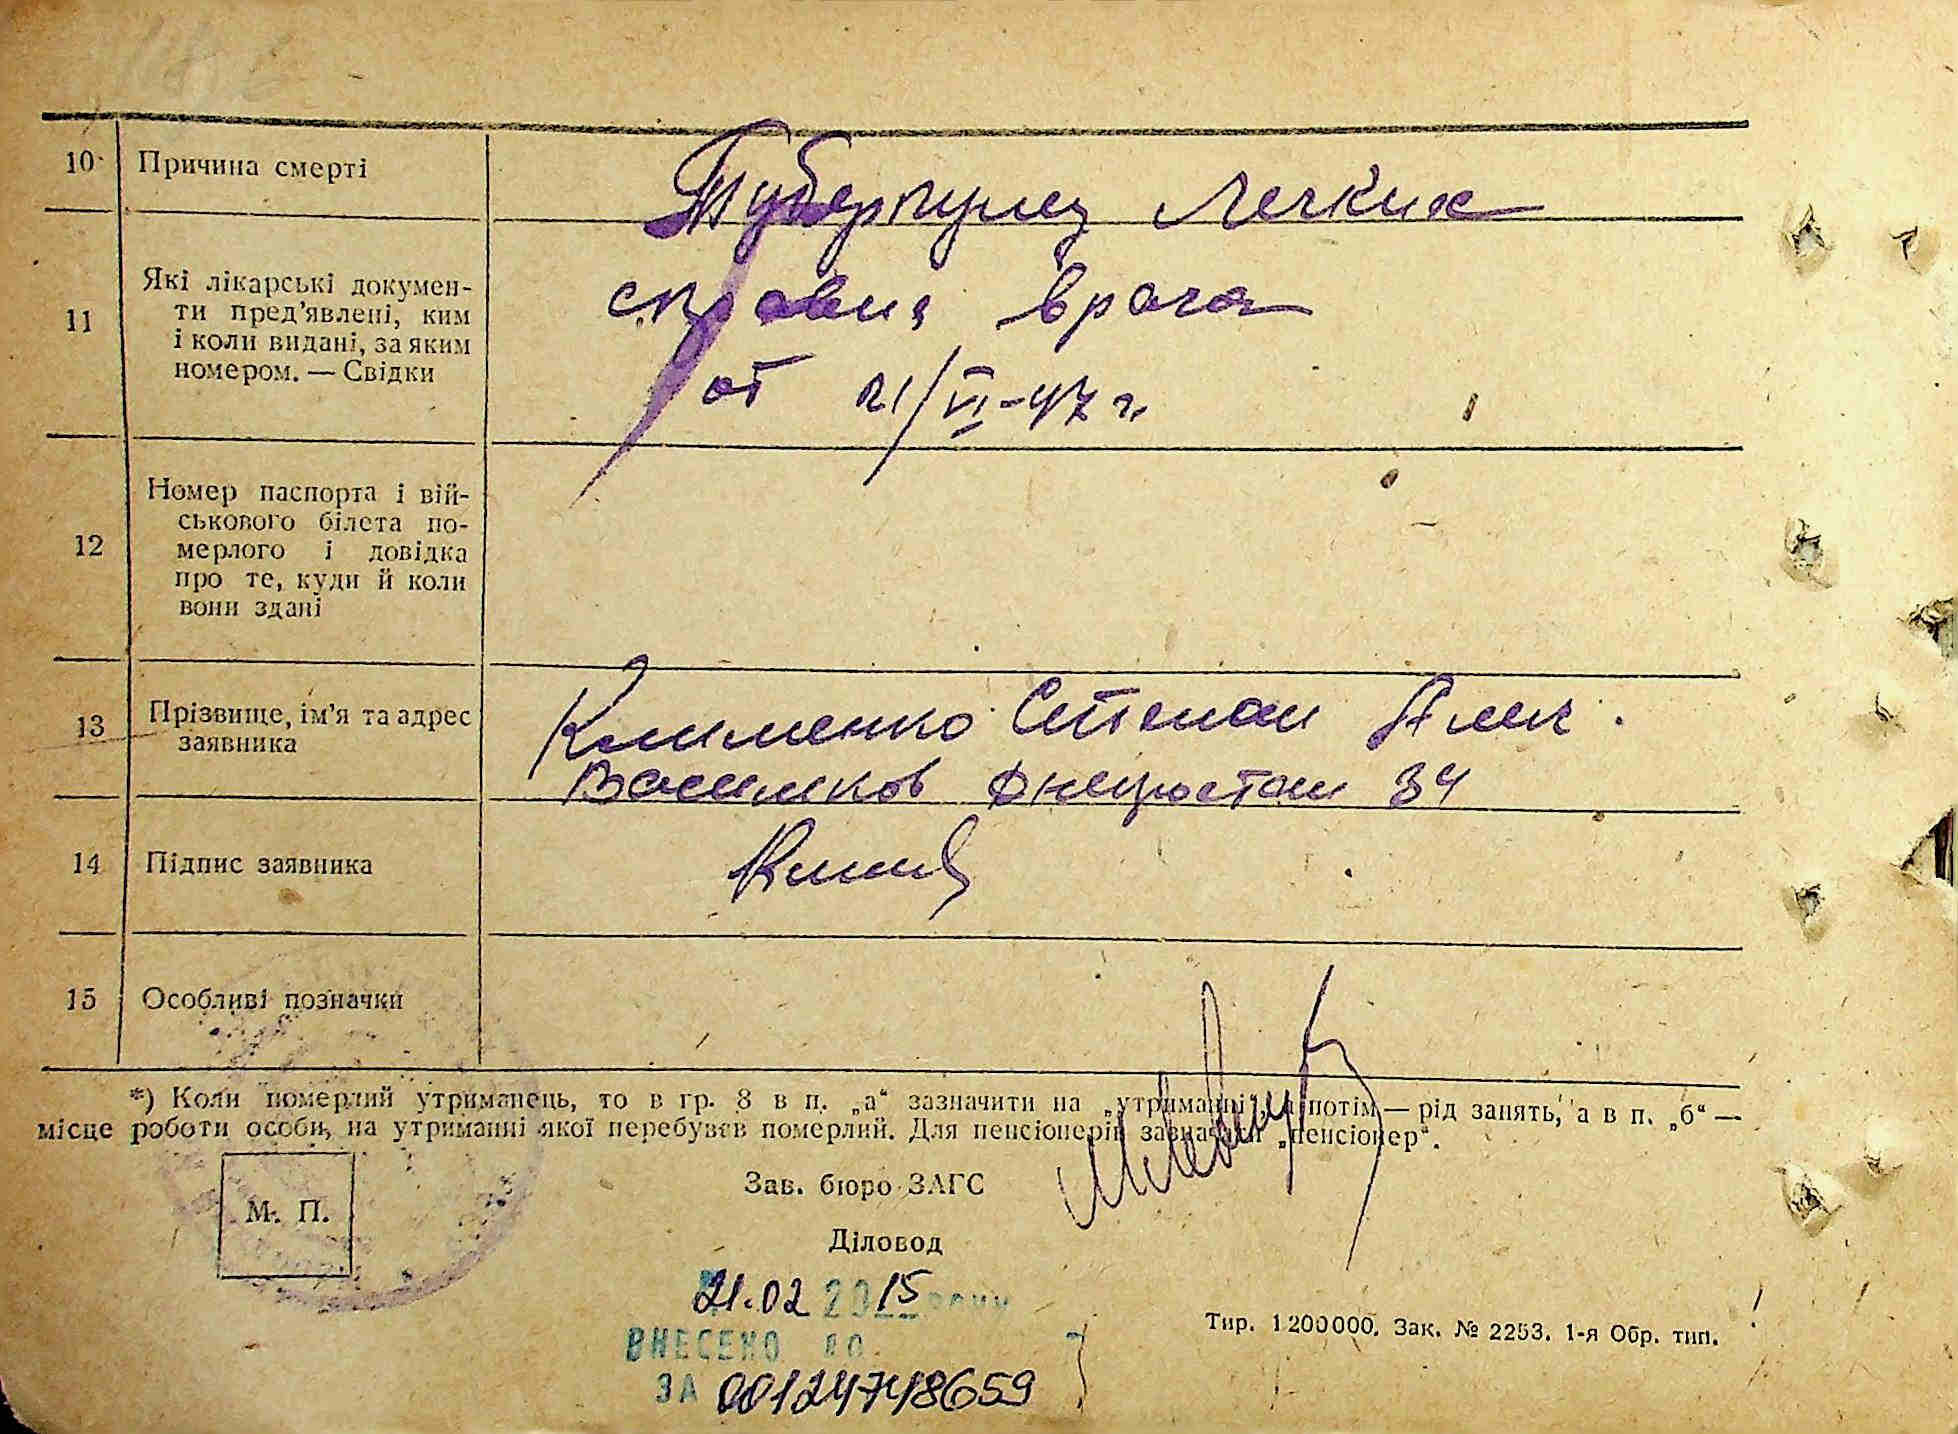 10
Причина смерті
Туберкулез легких
11
Які лікарські докумен-
ти пред'явлені, ким
і коли видані, за яким
номером. — Свідки
справка врача
от 21/VI-47 г.
12
Номер паспорта і вій-
ськового білета по-
мерлого і довідка
про те, куди й коли
вони здані
13
Прізвище, ім'я та адрес
заявника
Клименко Степан Алек.
Васильков 34
14
Підпис заявника
15
Особливі позначки
*) Коли померлий утриманець, то в гр. 8 в п. „а“ зазначити на „утриманні“, а потім — рід занять, а в п. „б“ —
місце роботи особи, на утриманні якої перебував померлий. Для пенсіонерів зазначити „пенсіонер“.
Зав. бюро ЗАГС
М. П.
Діловод
21.02 2015 року
Тир. 1200000. Зак. № 2253. 1-я Обр. тип.
ВНЕСЕНО ДО
ЗА 00124748659